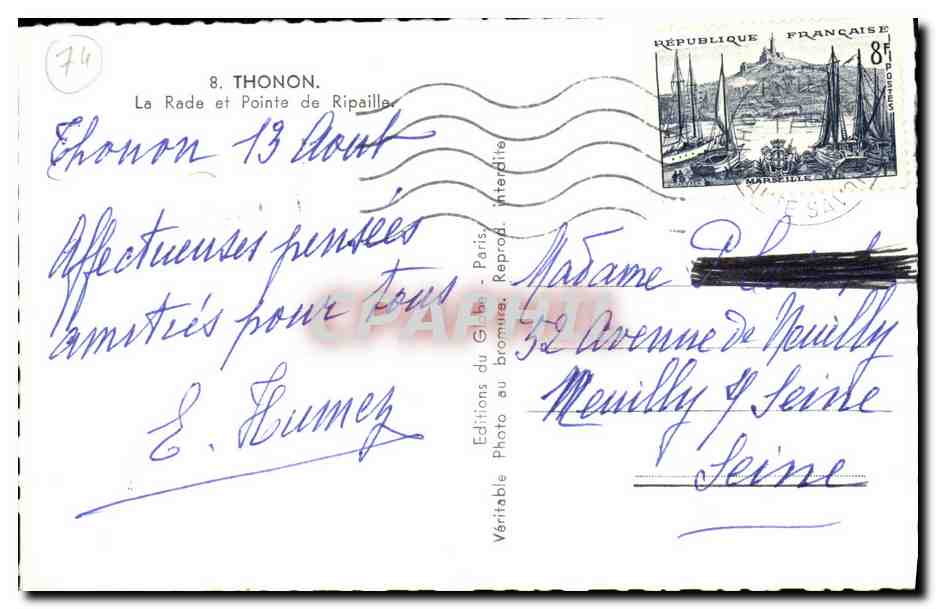 74
8. THONON.
La Rade et Pointe de Ripaille.
Thonon 13 Aout
Affectueuses pensées
amitiés pour tous
E. Humez
Editions du Globe - Paris.
Véritable Photo au bromure. Reprod. interdite
RÉPUBLIQUE FRANÇAISE
8F
POSTES
MARSEILLE
TE SAVOIE
Madame
52 Avenue de Neuilly
Neuilly s/ Seine
Seine
CPARAMA